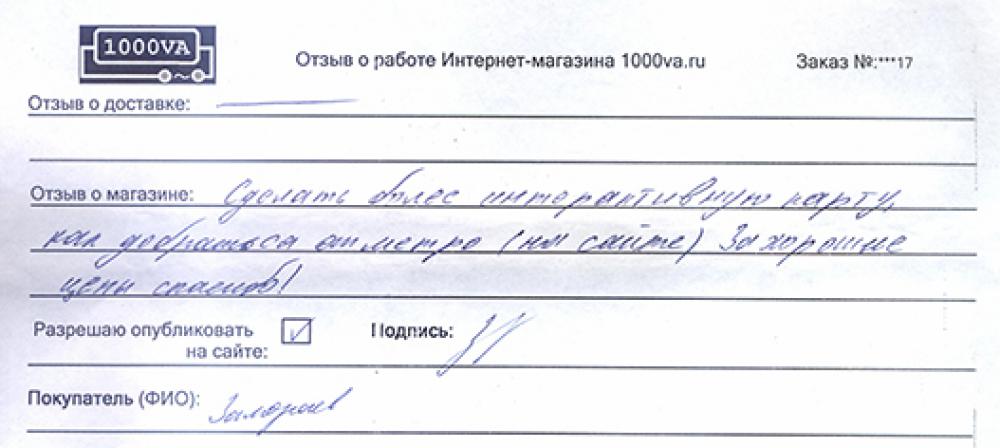 1000VA
Отзыв о работе Интернет-магазина 1000va.ru
Заказ №:***17
Отзыв о доставке: —
Отзыв о магазине: Сделать более интерактивную карту,
как добраться от метро (на сайте) За хорошие
цены спасибо!
Разрешаю опубликовать ☑ Подпись:
на сайте:
Покупатель (ФИО):